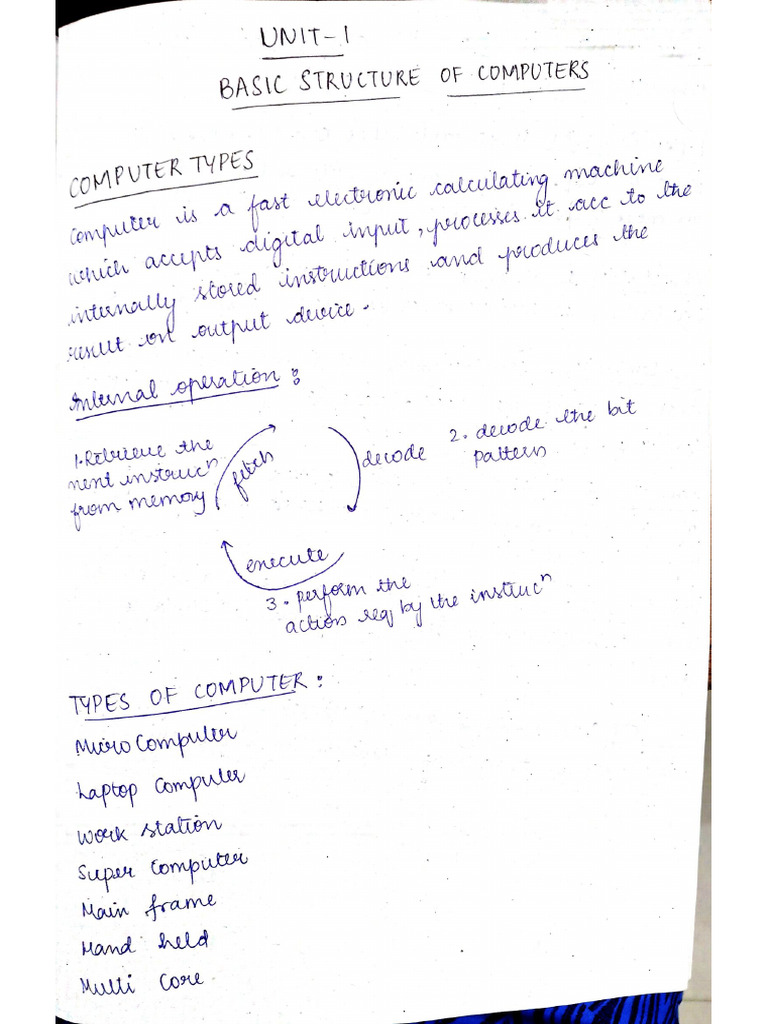 UNIT-1
BASIC STRUCTURE OF COMPUTERS
COMPUTER TYPES
Computer is a fast electronic calculating machine
which accepts digital input, processes it acc to the
internally stored instructions and produces the
result on output device.
Internal operation:
1. Retrieve the
next instrucⁿ
from memory
fetch
decode
2. decode the bit
pattern
execute
3. perform the
action req by the instrucⁿ
TYPES OF COMPUTER:
Micro Computer
Laptop Computer
Work station
Super Computer
Main frame
Hand held
Multi Core